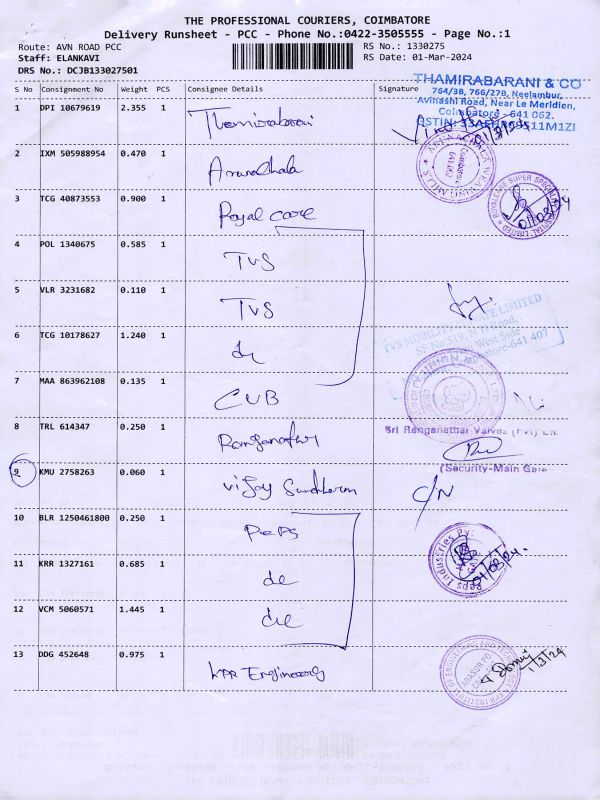 THE PROFESSIONAL COURIERS, COIMBATORE
Delivery Runsheet - PCC - Phone No.:0422-3505555 - Page No.:1
Route: AVN ROAD PCC
RS No.: 1330275
Staff: ELANKAVI
RS Date: 01-Mar-2024
DRS No.: DCJB133027501
S No Consignment No Weight PCS Consignee Details Signature
THAMIRABARANI & CO
764/3B, 766/27B, Neelambur,
Avinashi Road, Near Le Meridien,
Coimbatore - 641 062.
1 DPI 10679619 2.355 1 Thamirabarani
2 IXM 505988954 0.470 1 Arunachala
3 TCG 40873553 0.900 1 Royal care
4 POL 1340675 0.585 1 TVS
5 VLR 3231682 0.110 1 TVS
TVS MOBILITY PRIVATE LIMITED
6 TCG 10178627 1.240 1
7 MAA 863962108 0.135 1 CUB
8 TRL 614347 0.250 1 Ranganathar
Sri Ranganathar Valves (Pvt) Ltd
(Security-Main Gate
9 KMU 2758263 0.060 1 Vijay Sundharam C/N
10 BLR 1250461800 0.250 1 Peps
11 KRR 1327161 0.685 1 do
Peps Industries
01/03/24
12 VCM 5060571 1.445 1
13 DDG 452648 0.975 1 KPR Engineering
1/3/24